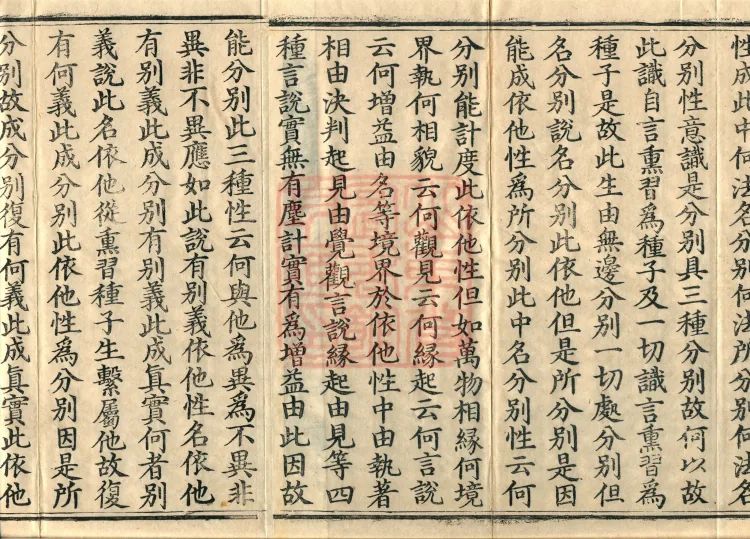 性成此中何法名分別何法所分別何法名
分別性意識是分別具三種分別故何以故
此識自言熏習為種子及一切識言熏習為
種子是故此生由無邊分別一切處分別但
名分別說名分別此依他但是所分別是因
能成依他性為所分別此中名分別性云何
分別能計度此依他性但如萬物相緣何境
界執何相貌云何觀見云何緣起云何言說
云何增益由名等境界於依他性中由執著
相由決判起見由覺觀言說緣起由見等四
種言說實無有塵計實有為增益由此因故
能分別此三種性云何與他為異為不異非
異非不異應如此說有別義依他性名依他
有別義此成分別有別義此成真實何者別
義說此名依他從熏習種子生繫屬他故復
有何義此成分別此依他性為分別因是所
分別故成分別復有何義此成真實此依他